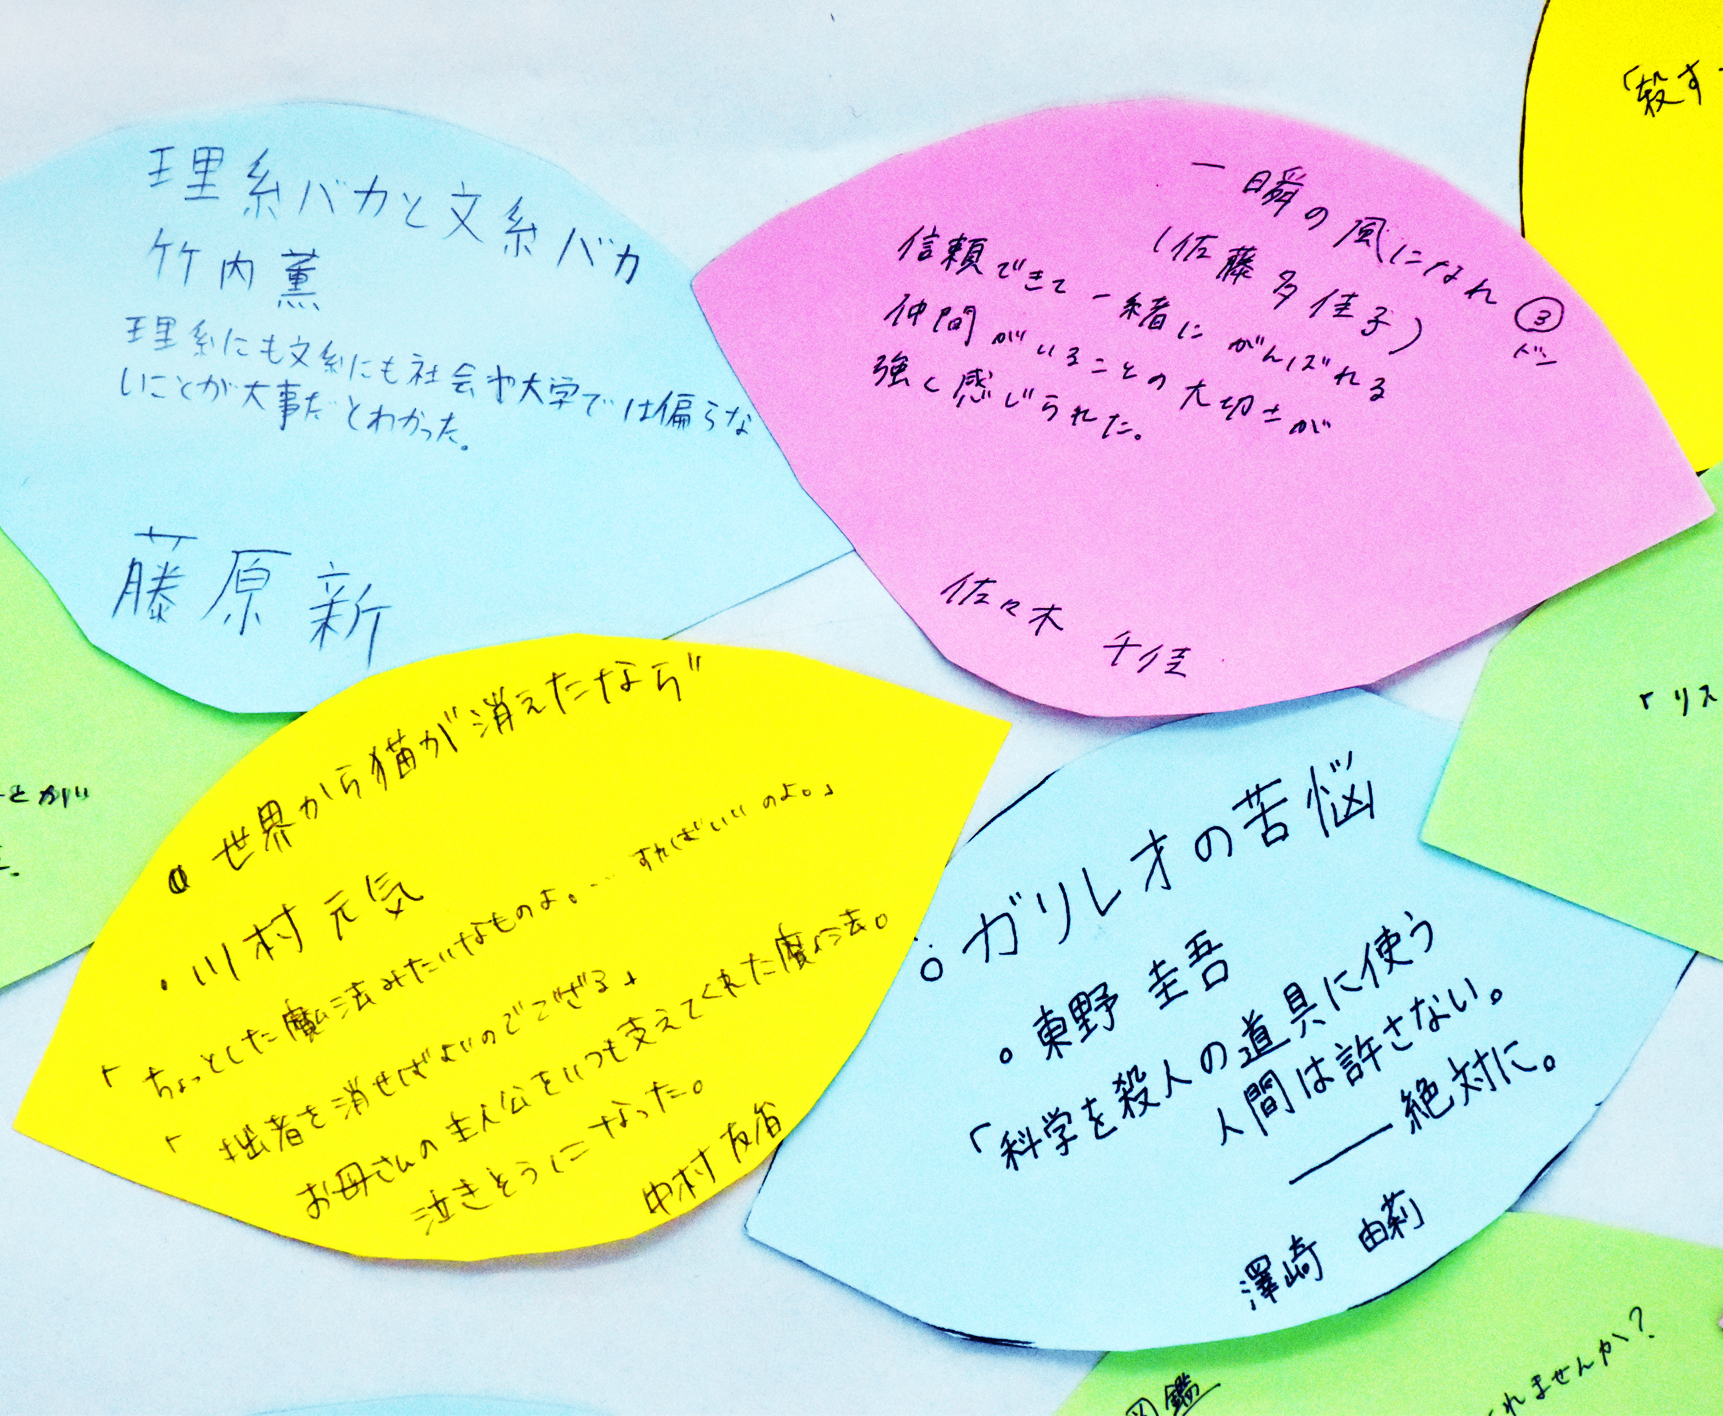 理系バカと文系バカ
竹内薫
理系にも文系にも社会や大学では偏らな
いことが大事だとわかった。
藤原新
一瞬の風になれ ③
ドン
(佐藤多佳子)
信頼できて一緒にがんばれる
仲間がいることの大切さが
強く感じられた。
佐々木 千佳
「殺す
「リス
とが
世界から猫が消えたなら"
・川村元気
「ちょっとした魔法みたいなものよ。… すればいいのよ。」
「拙者を消せばよいのでござる」
お母さんの主人公をいつも支えてくれた魔法。
泣きそうになった。
中村友省
ガリレオの苦悩
東野 圭吾
「科学を殺人の道具に使う
人間は許さない。
――絶対に。
澤崎 由莉
図鑑
れませんか?